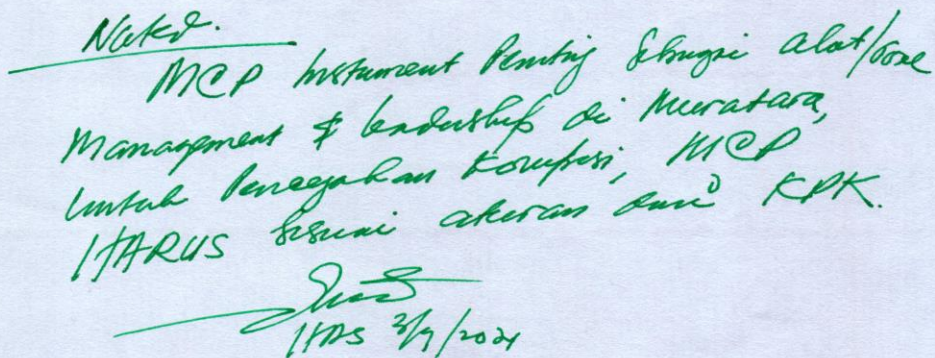 Noted.
MCP Instrument Penting sebagai alat/tool
Management & leadership di Muratara,
untuk Pencegahan Korupsi, MCP
HARUS sesuai aturan dari KPK.
HDS 3/9/2021